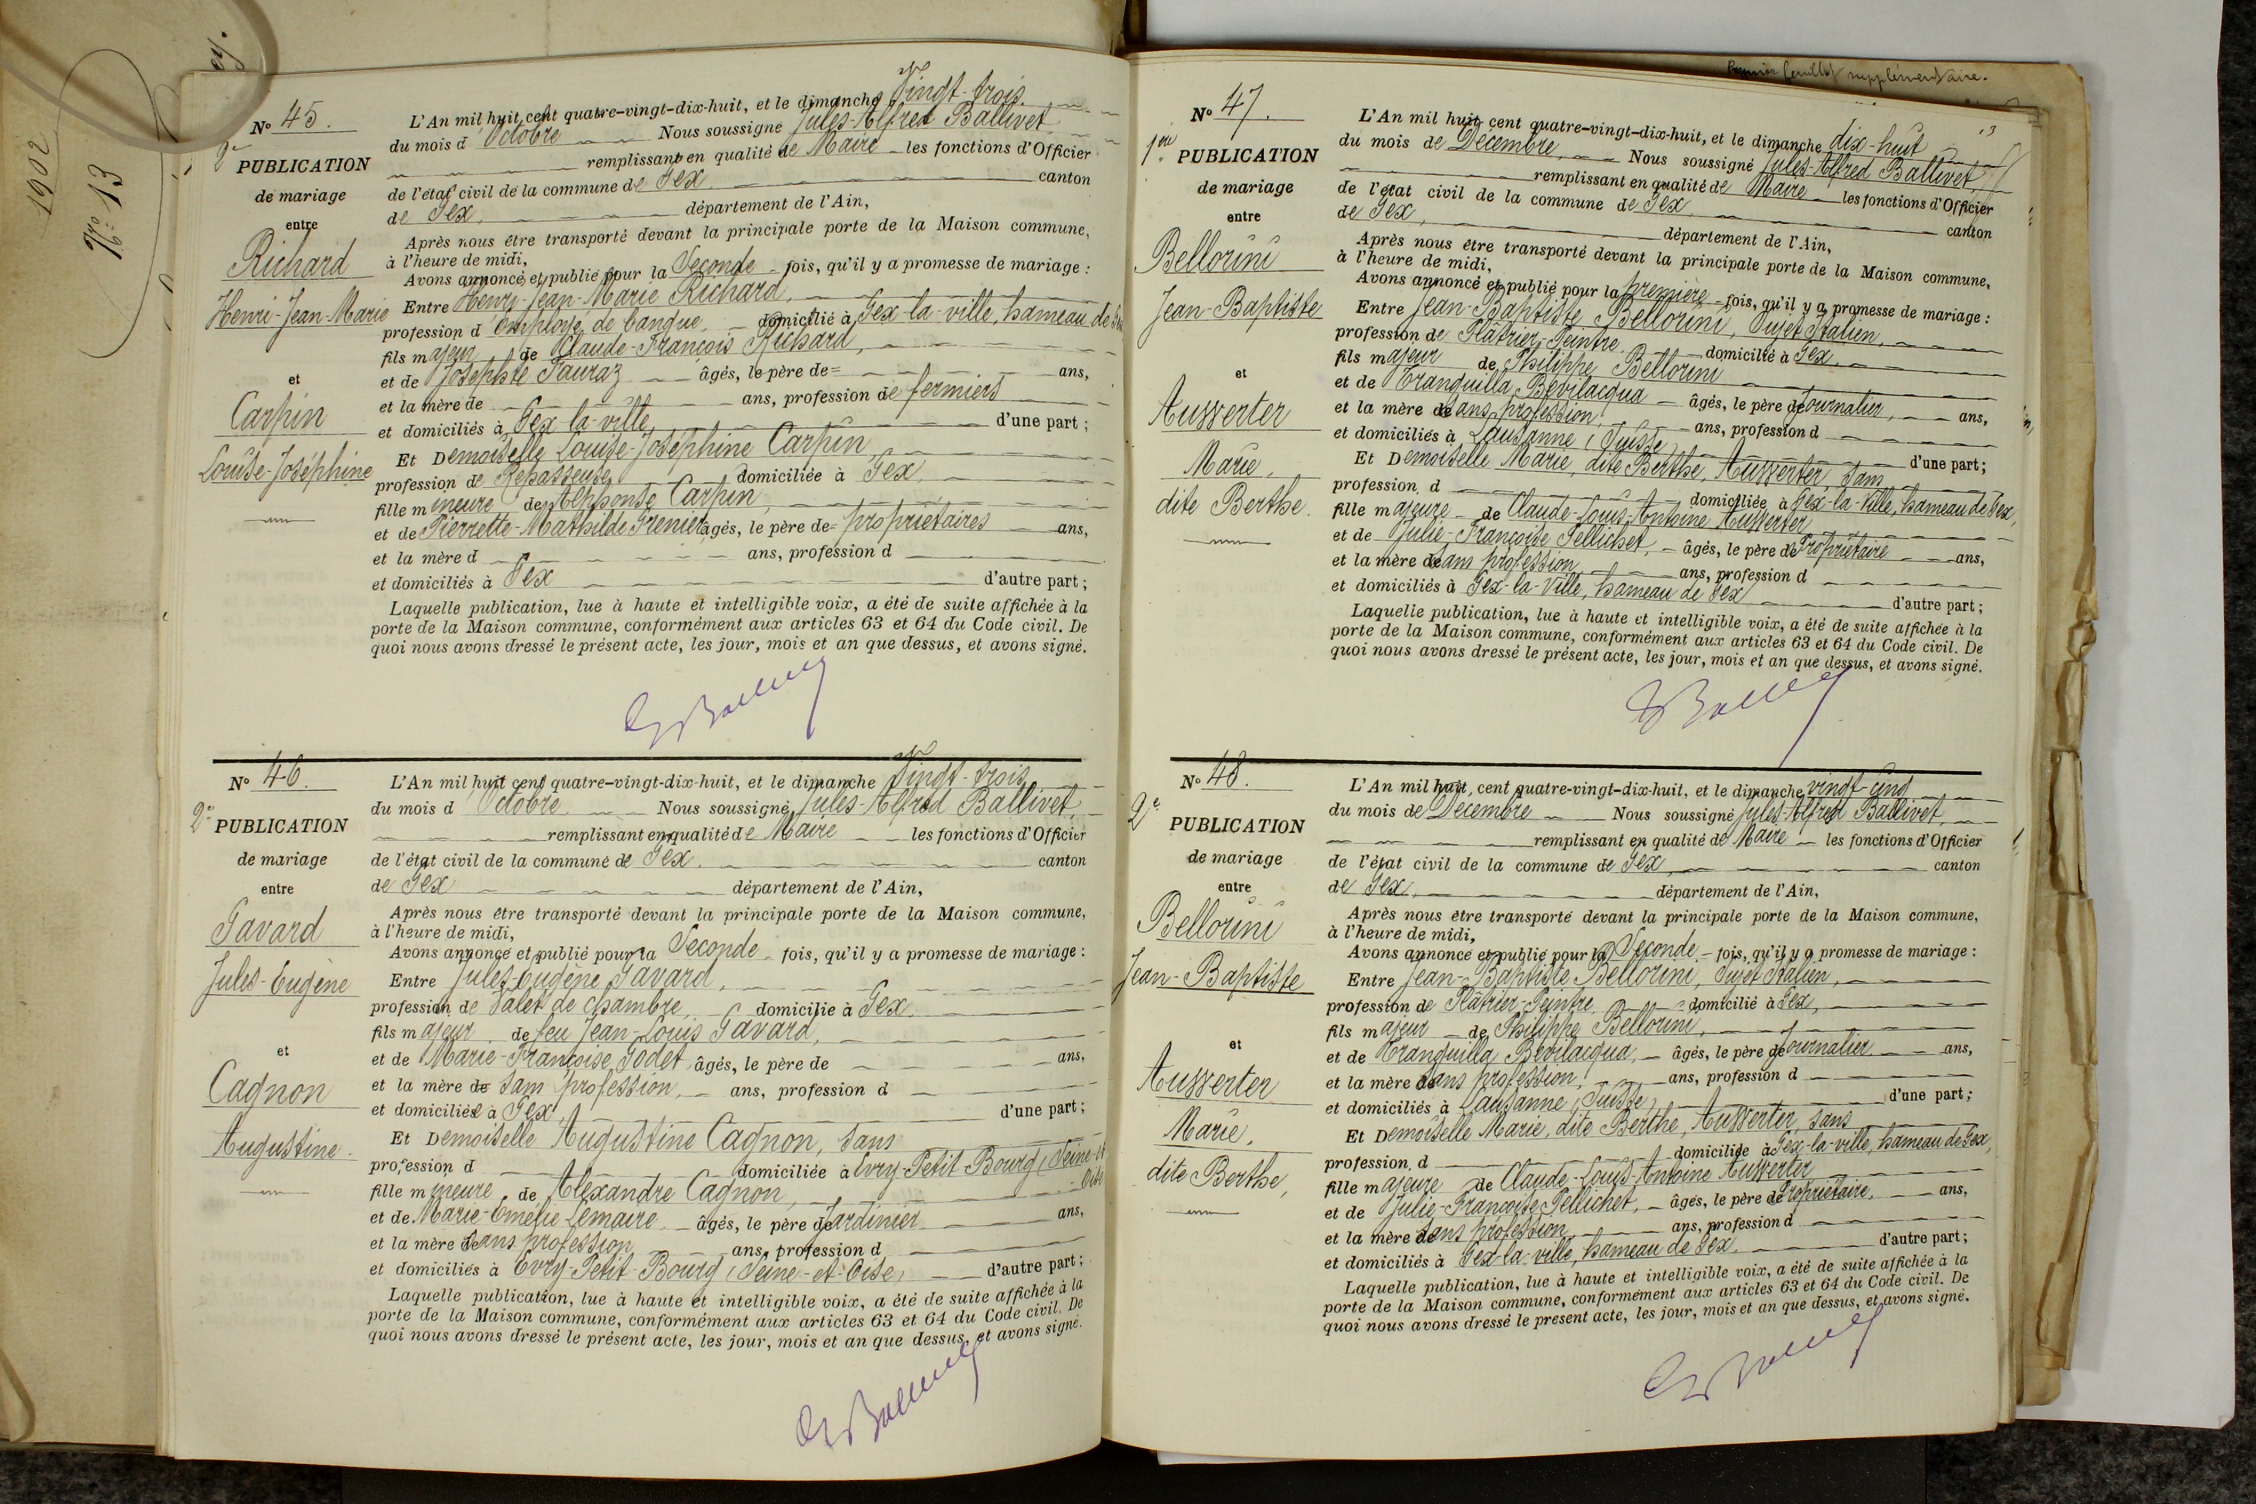 1902
N° 13
ey.
N° 45.
2e
PUBLICATION
de mariage
entre
Richard
Henri-Jean-Marie
et
Carpin
Louise-Joséphine
L'An mil huit cent quatre-vingt-dix-huit, et le dimanche Vingt-trois
du mois d'Octobre Nous soussigné Jules-Alfred Ballivet,
remplissant en qualité de Maire les fonctions d'Officier
de l'état civil de la commune de Gex canton
de Gex, département de l'Ain,
Après nous être transporté devant la principale porte de la Maison commune,
à l'heure de midi,
Avons annoncé et publié pour la Seconde fois, qu'il y a promesse de mariage :
Entre Henri-Jean-Marie Richard,
profession d'employé de banque, domicilié à Gex-la-ville, hameau de Gex
fils majeur de Claude-François Richard,
et de Josephte Tauraz âgés, le père de= ans,
et la mère de ans, profession de fermiers
et domiciliés à Gex-la-ville, d'une part ;
Et Demoiselle Louise-Joséphine Carpin,
profession de Repasseuse domiciliée à Gex,
fille mineure de Alphonse Carpin,
et de Pierrette-Mathilde Grenier âgés, le père de= propriétaires ans,
et la mère d ans, profession d
et domiciliés à Gex d'autre part ;
Laquelle publication, lue à haute et intelligible voix, a été de suite affichée à la
porte de la Maison commune, conformément aux articles 63 et 64 du Code civil. De
quoi nous avons dressé le présent acte, les jour, mois et an que dessus, et avons signé.
N° 46.
2e
PUBLICATION
de mariage
entre
Gavard
Jules-Eugène
et
Cagnon
Augustine.
L'An mil huit cent quatre-vingt-dix-huit, et le dimanche Vingt-trois
du mois d'Octobre Nous soussigné, Jules-Alfred Ballivet,
remplissant en qualité de Maire les fonctions d'Officier
de l'état civil de la commune de Gex. canton
de Gex département de l'Ain,
Après nous être transporté devant la principale porte de la Maison commune,
à l'heure de midi,
Avons annoncé et publié pour la Seconde fois, qu'il y a promesse de mariage :
Entre Jules-Eugène Gavard,
profession de Valet de chambre, domicilié à Gex.
fils majeur de feu Jean-Louis Gavard,
et de Marie-Françoise Godet, âgés, le père de ans,
et la mère de sans profession, ans, profession d
et domiciliée à Gex, d'une part ;
Et Demoiselle Augustine Cagnon, sans
profession d domiciliée à Evry-Petit-Bourg (Seine-et
fille mineure de Alexandre Cagnon, -Oise
et de Marie-Emélie Lemaire âgés, le père de Jardinier ans,
et la mère de sans profession ans, profession d
et domiciliés à Evry-Petit-Bourg (Seine-et-Oise) d'autre part ;
Laquelle publication, lue à haute et intelligible voix, a été de suite affichée à la
porte de la Maison commune, conformément aux articles 63 et 64 du Code civil. De
quoi nous avons dressé le présent acte, les jour, mois et an que dessus, et avons signé.
supplémentaire.
N° 47.
1ère
PUBLICATION
de mariage
entre
Bellorini
Jean-Baptiste
et
Ausserter
Marie,
dite Berthe.
L'An mil huit cent quatre-vingt-dix-huit, et le dimanche dix-huit
du mois de Décembre, Nous soussigné Jules-Alfred Ballivet,
remplissant en qualité de Maire les fonctions d'Officier
de l'état civil de la commune de Gex canton
de Gex, département de l'Ain,
Après nous être transporté devant la principale porte de la Maison commune,
à l'heure de midi,
Avons annoncé et publié pour la première fois, qu'il y a promesse de mariage :
Entre Jean-Baptiste Bellorini, Sujet Italien,
profession de Plâtrier-Peintre domicilié à Gex,
fils majeur de Philippe Bellorini
et de Tranquilla Bevilacqua âgés, le père de Journalier, ans,
et la mère de sans profession, ans, profession d
et domiciliés à Lausanne (Suisse) d'une part ;
Et Demoiselle Marie, dite Berthe, Ausserter, sans
profession d domiciliée à Gex-la-Ville, hameau de Gex,
fille majeure de Claude-Louis-Antoine Ausserter
et de Julie-Françoise Pellichet, âgés, le père de Propriétaire ans,
et la mère de sans profession, ans, profession d
et domiciliés à Gex-la-Ville, hameau de Gex d'autre part ;
Laquelle publication, lue à haute et intelligible voix, a été de suite affichée à la
porte de la Maison commune, conformément aux articles 63 et 64 du Code civil. De
quoi nous avons dressé le présent acte, les jour, mois et an que dessus, et avons signé.
N° 48.
2e
PUBLICATION
de mariage
entre
Bellorini
Jean-Baptiste
et
Ausserter
Marie,
dite Berthe,
L'An mil huit cent quatre-vingt-dix-huit, et le dimanche vingt-cinq
du mois de Décembre Nous soussigné Jules-Alfred Ballivet,
remplissant en qualité de Maire les fonctions d'Officier
de l'état civil de la commune de Gex, canton
de Gex, département de l'Ain,
Après nous être transporté devant la principale porte de la Maison commune,
à l'heure de midi,
Avons annoncé et publié pour la Seconde fois, qu'il y a promesse de mariage :
Entre Jean-Baptiste Bellorini, Sujet Italien,
profession de Plâtrier-Peintre domicilié à Gex,
fils majeur de Philippe Bellorini,
et de Tranquilla Bevilacqua, âgés, le père de Journalier ans,
et la mère de sans profession, ans, profession d
et domiciliés à Lausanne (Suisse) d'une part ;
Et Demoiselle Marie, dite Berthe, Ausserter, sans
profession d domiciliée à Gex-la-ville, hameau de Gex,
fille majeure de Claude-Louis-Antoine Ausserter
et de Julie-Françoise Pellichet, âgés, le père de Propriétaire, ans,
et la mère de sans profession ans, profession d
et domiciliés à Gex-la-ville, hameau de Gex. d'autre part ;
Laquelle publication, lue à haute et intelligible voix, a été de suite affichée à la
porte de la Maison commune, conformément aux articles 63 et 64 du Code civil. De
quoi nous avons dressé le présent acte, les jour, mois et an que dessus, et avons signé.